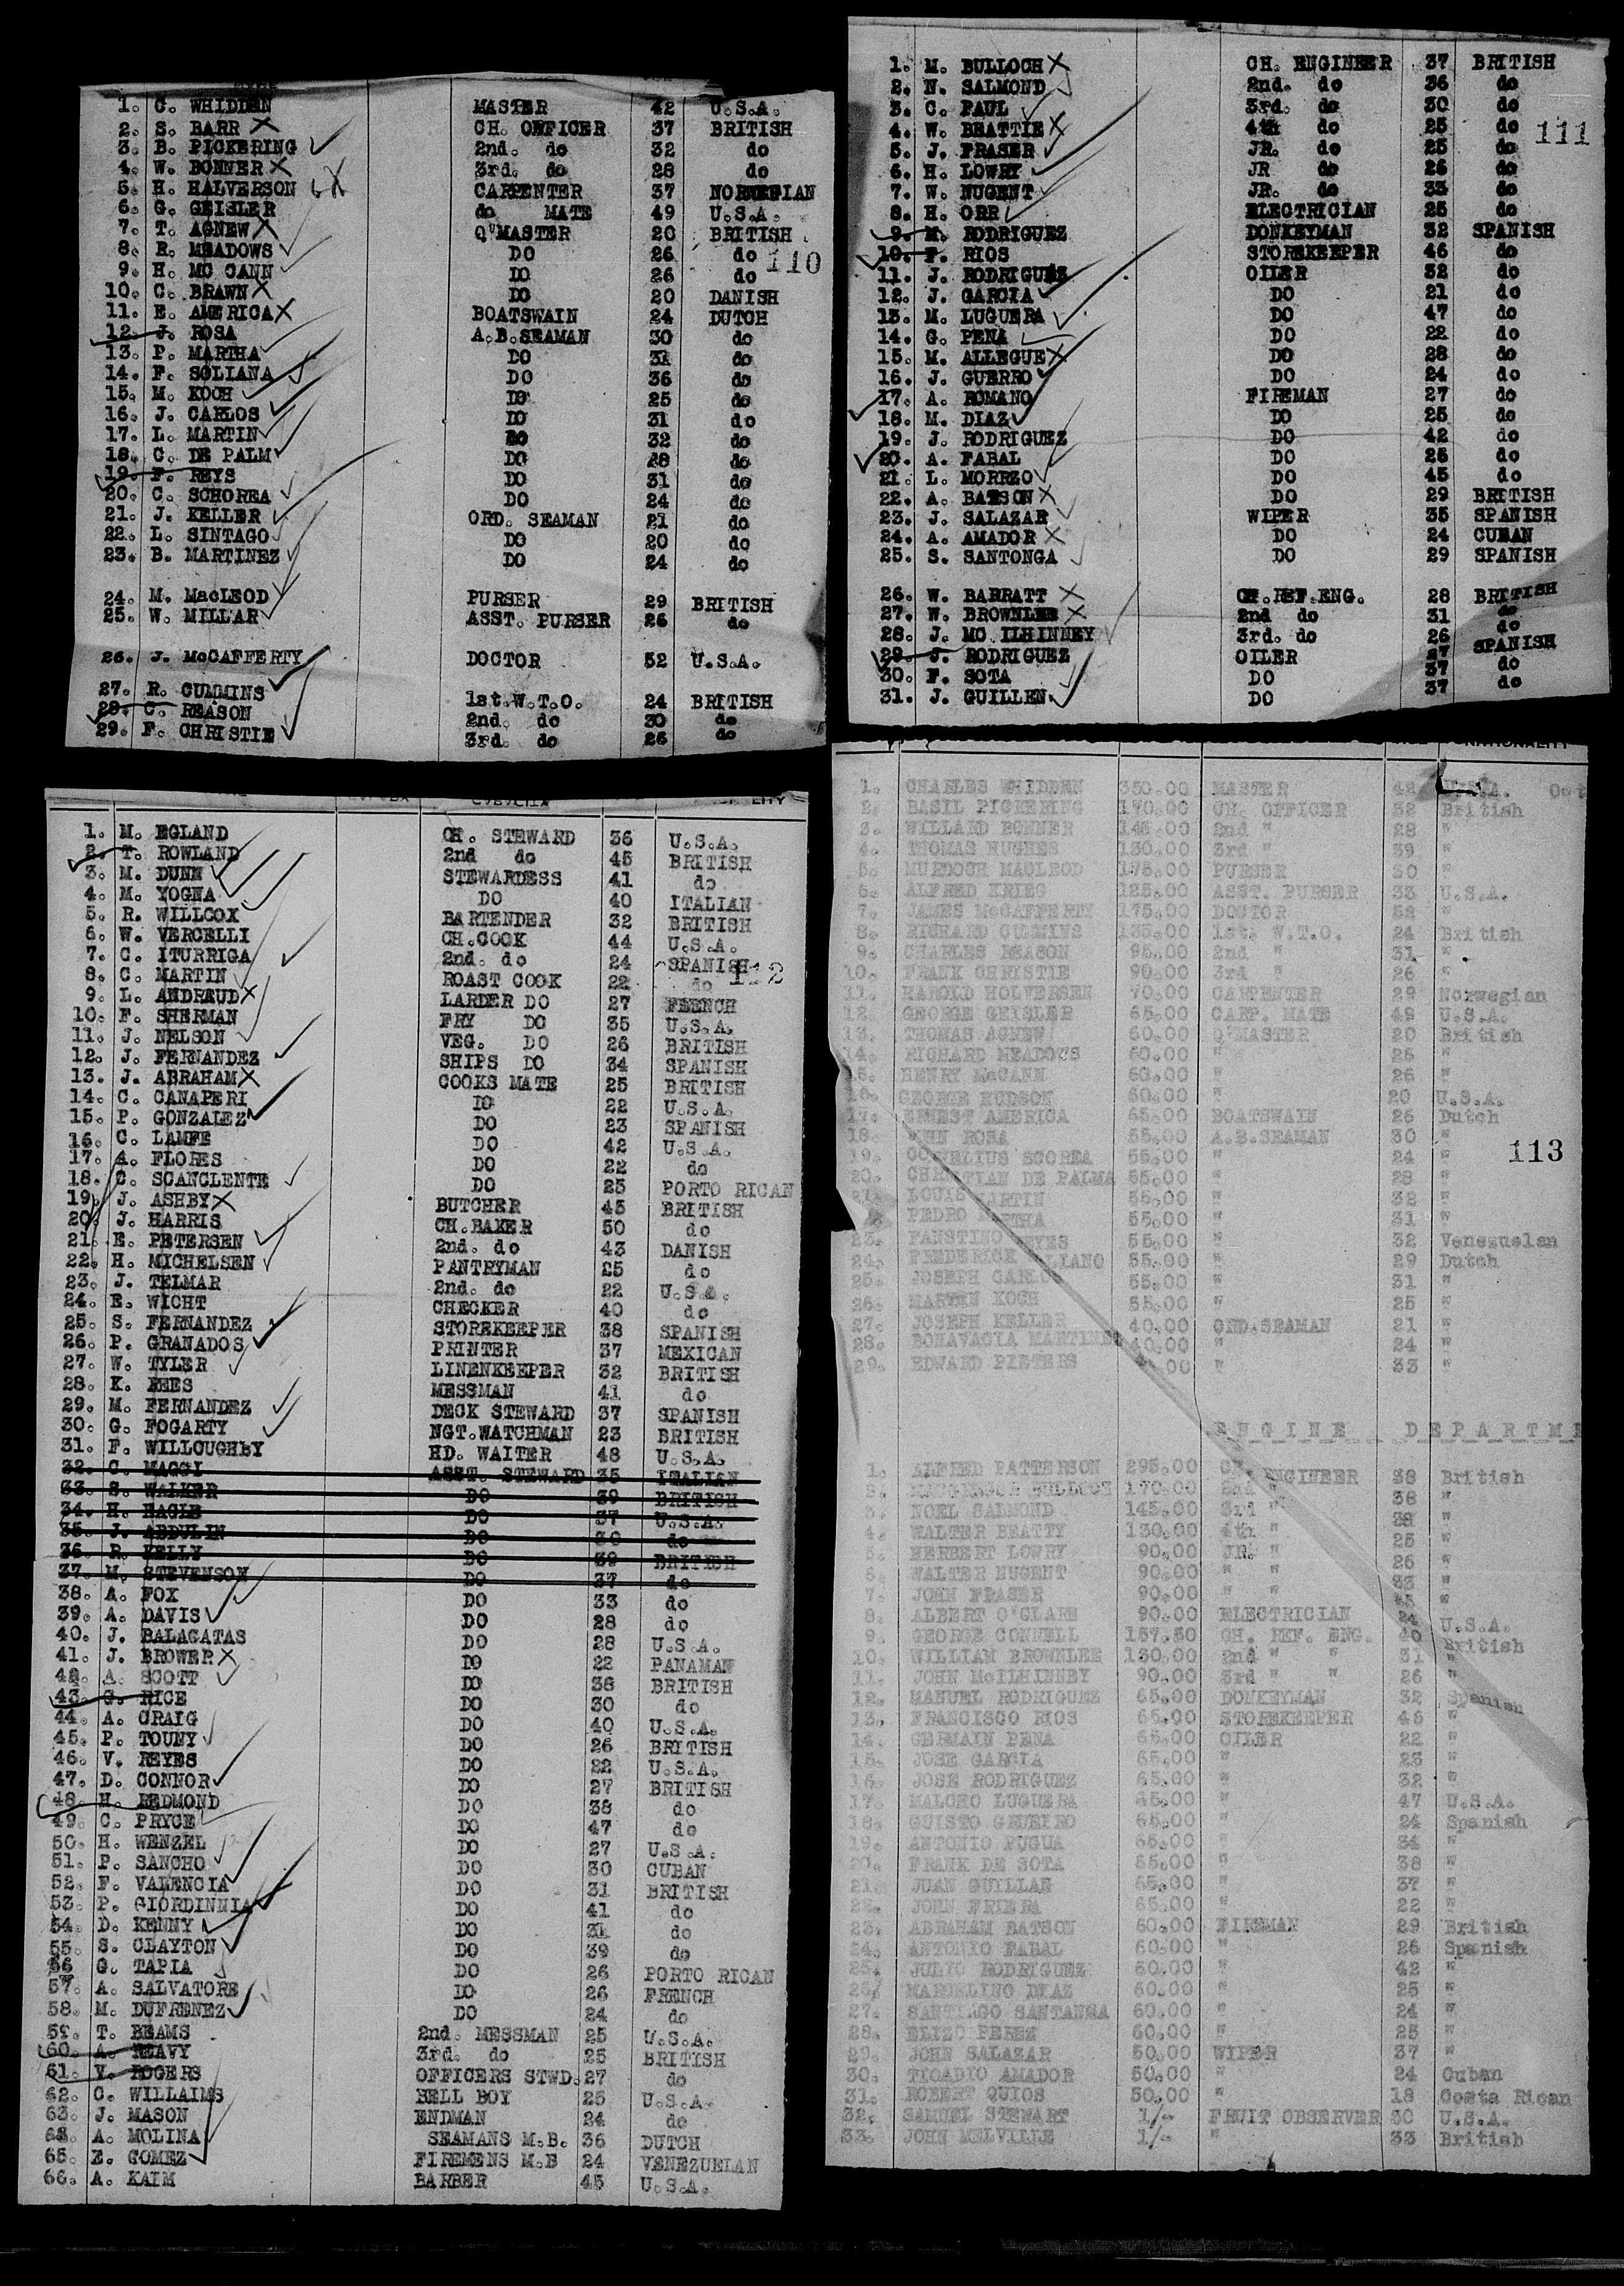 1. C. WHIDDEN MASTER 42 U.S.A.
2. S. BARR CH. OFFICER 37 BRITISH
3. B. PICKERING 2nd. do 32 do
4. W. BONNER 3rd. do 28 do
5. H. HALVERSON CARPENTER 37 NORWEGIAN
6. G. GEISLER do MATE 49 U.S.A.
7. T. AGNEW Q'MASTER 20 BRITISH
8. R. MEADOWS DO 26 do
110
9. H. MC CANN DO 26 do
10. C. BRAWN DO 20 DANISH
11. E. AMERICA BOATSWAIN 24 DUTCH
12. J. ROSA A.B.SEAMAN 30 do
13. P. MARTHA DO 31 do
14. F. SOLIANA DO 36 do
15. M. KOCH DO 25 do
16. J. CARLOS DO 31 do
17. L. MARTIN DO 32 do
18. C. DE PALM DO 28 do
19. F. REYS DO 31 do
20. C. SCHOREA DO 24 do
21. J. KELLER ORD. SEAMAN 21 do
22. L. SINTAGO DO 20 do
23. B. MARTINEZ DO 24 do
24. M. MacLEOD PURSER 29 BRITISH
25. W. MILLAR ASST. PURSER 26 do
26. J. McCAFFERTY DOCTOR 52 U.S.A.
27. R. CUMMINS 1st.W.T.O. 24 BRITISH
28. C. REASON 2nd. do 30 do
29. F. CHRISTIE 3rd. do 26 do
1. M. BULLOCH CH. ENGINEER 37 BRITISH
2. N. SALMOND 2nd. do 36 do
3. C. PAUL 3rd. do 30 do
4. W. BEATTIE 4th do 25 do
111
5. J. FRASER JR. do 25 do
6. H. LOWRY JR do 26 do
7. W. NUGENT JR. do 33 do
8. H. ORR ELECTRICIAN 25 do
9. M. RODRIGUEZ DONKEYMAN 32 SPANISH
10. F. RIOS STOREKEEPER 46 do
11. J. RODRIGUEZ OILER 32 do
12. J. GARCIA DO 21 do
13. M. LUGUERA DO 47 do
14. G. PENA DO 22 do
15. M. ALLEGUE DO 28 do
16. J. GUERRO DO 24 do
17. A. ROMANO FIREMAN 27 do
18. M. DIAZ DO 25 do
19. J. RODRIGUEZ DO 42 do
20. A. FABAL DO 25 do
21. L. MORRZO DO 45 do
22. A. BATSON DO 29 BRITISH
23. J. SALAZAR WIPER 35 SPANISH
24. A. AMADOR DO 24 CUBAN
25. S. SANTONGA DO 29 SPANISH
26. W. BARRATT CH.REF.ENG. 28 BRITISH
27. W. BROWNLEE 2nd do 31 do
28. J. MC ILHINNEY 3rd. do 26 do
29. J. RODRIGUEZ OILER 27 SPANISH
30. F. SOTA DO 37 do
31. J. GUILLEN DO 37 do
1. M. EGLAND CH. STEWARD 36 U.S.A.
2. T. ROWLAND 2nd do 45 BRITISH
3. M. DUNN STEWARDESS 41 do
4. M. YOGNA DO 40 ITALIAN
5. R. WILLCOX BARTENDER 32 BRITISH
6. W. VERCELLI CH.COOK 44 U.S.A.
7. C. ITURRIGA 2nd. do 24 SPANISH
112
8. C. MARTIN ROAST COOK 22 do
9. L. ANDRAUD LARDER DO 27 FRENCH
10. F. SHERMAN FRY DO 35 U.S.A.
11. J. NELSON VEG. DO 26 BRITISH
12. J. FERNANDEZ SHIPS DO 34 SPANISH
13. J. ABRAHAM COOKS MATE 25 BRITISH
14. C. CANAPERI DO 22 U.S.A.
15. P. GONZALEZ DO 23 SPANISH
16. C. LAMFE DO 42 U.S.A.
17. A. FLORES DO 22 do
18. C. SCANCLENTE DO 25 PORTO RICAN
19. J. ASHBY BUTCHER 45 BRITISH
20. J. HARRIS CH.BAKER 50 do
21. E. PETERSEN 2nd. do 43 DANISH
22. H. MICHELSEN PANTRYMAN 25 do
23. J. TELMAR 2nd. do 22 U.S.A.
24. E. WICHT CHECKER 40 do
25. S. FERNANDEZ STOREKEEPER 38 SPANISH
26. P. GRANADOS PRINTER 37 MEXICAN
27. W. TYLER LINENKEEPER 32 BRITISH
28. K. REES MESSMAN 41 do
29. M. FERNANDEZ DECK STEWARD 37 SPANISH
30. G. FOGARTY NGT.WATCHMAN 23 BRITISH
31. F. WILLOUGHBY HD. WAITER 48 U.S.A.
32. C. MAGGI ASST. STEWARD 35 ITALIAN
33. S. WALKER DO 39 BRITISH
34. H. EAGLE DO 37 U.S.A.
35. J. ABDULIN DO 30 do
36. R. KELLY DO 39 BRITISH
37. M. STEVENSON DO 37 do
38. A. FOX DO 33 do
39. A. DAVIS DO 28 do
40. J. BALAGATAS DO 28 U.S.A.
41. J. BROWER DO 22 PANAMAN
42. A. SCOTT DO 38 BRITISH
43. G. RICE DO 30 do
44. A. CRAIG DO 40 U.S.A.
45. P. TOUNY DO 26 BRITISH
46. V. REYES DO 22 U.S.A.
47. D. CONNOR DO 27 BRITISH
48. H. REDMOND DO 38 do
49. C. PRYCE DO 47 do
50. H. WENZEL DO 27 U.S.A.
51. P. SANCHO DO 30 CUBAN
52. F. VALENCIA DO 31 BRITISH
53. P. GIORDINNIA DO 41 do
54. D. KENNY DO 31 do
55. S. CLAYTON DO 39 do
56 G. TAPIA DO 26 PORTO RICAN
57. A. SALVATORE DO 26 FRENCH
58. M. DUFRENEZ DO 24 do
59. T. BEAMS 2nd. MESSMAN 25 U.S.A.
60. A. REAVY 3rd. do 25 BRITISH
61. V. ROGERS OFFICERS STWD. 27 do
62. C. WILLAIMS BELL BOY 25 U.S.A.
63. J. MASON ENDMAN 24 do
A. MOLINA SEAMANS M.B. 36 DUTCH
65. E. GOMEZ FIREMENS M.B 24 VENEZUELAN
66. A. KAIM BARBER 45 U.S.A.
NATIONALITY
1. CHARLES WHIDDEN 350.00 MASTER 42
2. BASIL PICKERING 170.00 CH. OFFICER 32 British
3. WILLARD BONNER 145.00 2nd " 28 "
4. THOMAS HUGHES 130.00 3rd " 39 "
5. MURDOCH MACLEOD 175.00 PURSER 30 "
6. ALFRED KRIEG 125.00 ASST. PURSER 33 U.S.A.
7. JAMES McCAFFERTY 175.00 DOCTOR 52 "
8. RICHARD CUMMINS 135.00 1st. W.T.O. 24 British
9. CHARLES REASON 95.00 2nd " 31 "
10. FRANK CHRISTIE 90.00 3rd " 26 "
11. HAROLD HOLVERSEN 70.00 CARPENTER 29 Norwegian
12. GEORGE GEISLER 65.00 CARP. MATE 49 U.S.A.
13. THOMAS AGNEW 60.00 Q'MASTER 20 British
14. RICHARD MEADOWS 60.00 " 26 "
15. HENRY McCANN 60.00 " 26 "
16. GEORGE HUDSON 60.00 " 20 U.S.A.
17. ERNEST AMERICA 65.00 BOATSWAIN 26 Dutch
18. ROSA 55.00 A.B.SEAMAN 30 "
113
19. SCOREA 55.00 " 24 "
20. DE PALMA 55.00 " 28 "
21. LOUIS MARTIN 55.00 " 32 "
PEDRO 55.00 " 31 "
23. FAUSTINO REYES 55.00 " 32 Venezuelan
24. FREDERICK 55.00 " 29 Dutch
25. JOSEPH CARLOS 55.00 " 31 "
26. MARTEN KOCH 55.00 " 25 "
27. JOSEPH KELLER 40.00 ORD.SEAMAN 21 "
28. BONAVACIA MARTINES 40.00 " 24 "
29. EDWARD PIETERS " 33 "
ENGINE DEPARTME
1. ALFRED PATTERSON 295.00 CH. ENGINEER 38 British
2. BULLOCH 170.00 2nd " 38 "
3. NOEL SALMOND 145.00 3rd " 38 "
4. WALTER BEATTY 130.00 4th " 25 "
5. HERBERT LOWRY 90.00 JR. " 26 "
6. WALTER NUGENT 90.00 " " 33 "
7. JOHN FRASER 90.00 " " 25 "
8. ALBERT O'CLARE 90.00 ELECTRICIAN 24 U.S.A.
9. GEORGE CONNELL 157.50 CH. REF. ENG. 40 British
10. WILLIAM BROWNLEE 130.00 2nd " " 31 "
11. JOHN McILHINNEY 90.00 3rd " " 26 "
12. MANUEL RODRIGUEZ 65.00 DONKEYMAN 32 Spanish
13. FRANCISCO RIOS 65.00 STOREKEEPER 46 "
14. GERMAIN PENA 65.00 OILER 22 "
15. JOSE GARCIA 65.00 " 23 "
16. JOSE RODRIGUEZ 65.00 " 32 "
17. MALCHO LUGUERA 65.00 " 47 U.S.A.
18. GUISTO 65.00 " 24 Spanish
19. ANTONIO PUGUA 65.00 " 34 "
20. FRANK DE SOTA 65.00 " 38 "
21. JUAN GUILLAN 65.00 " 37 "
22. JOHN 65.00 " 22 "
23. ABRAHAM BATSON 60.00 FIREMAN 29 British
24. ANTONIO FABAL 60.00 " 26 Spanish
25. JULIO RODRIGUEZ 60.00 " 42 "
26. MARCELINO DIAZ 60.00 " 25 "
27. SANTIAGO SANTANGA 60.00 " 24 "
28. ELIZO PEREZ 60.00 " 25 "
29. JOHN SALAZAR 50.00 WIPER 37 "
30. TIOADIO AMADOR 50.00 " 24 Cuban
31. ROBERT QUIOS 50.00 " 18 Costa Rican
32. SAMUEL STEWART 1/- FRUIT OBSERVER 50 U.S.A.
33. JOHN MELVILLE 1/- " 33 British